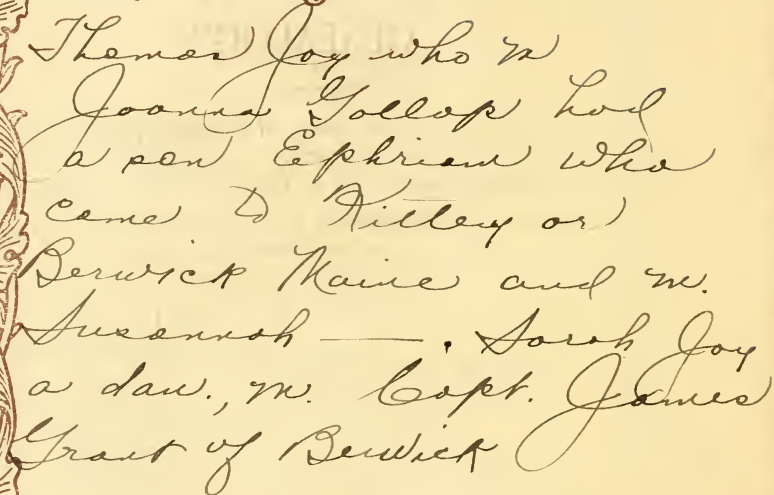 Thomas Joy who m
Joanna Gollop had
a son Ephriam who
came to Kittery or
Berwick Maine and m.
Susannah —. Sarah Joy
a dau., m. Capt. James
Grant of Berwick